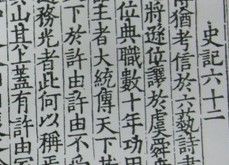 史記六十二
猶考信於六藝詩書
將遜位讓於虞舜
位典職數十年功用
王者大統傳天下
下於許由許由不
務光者此何以稱
山其上蓋有許由